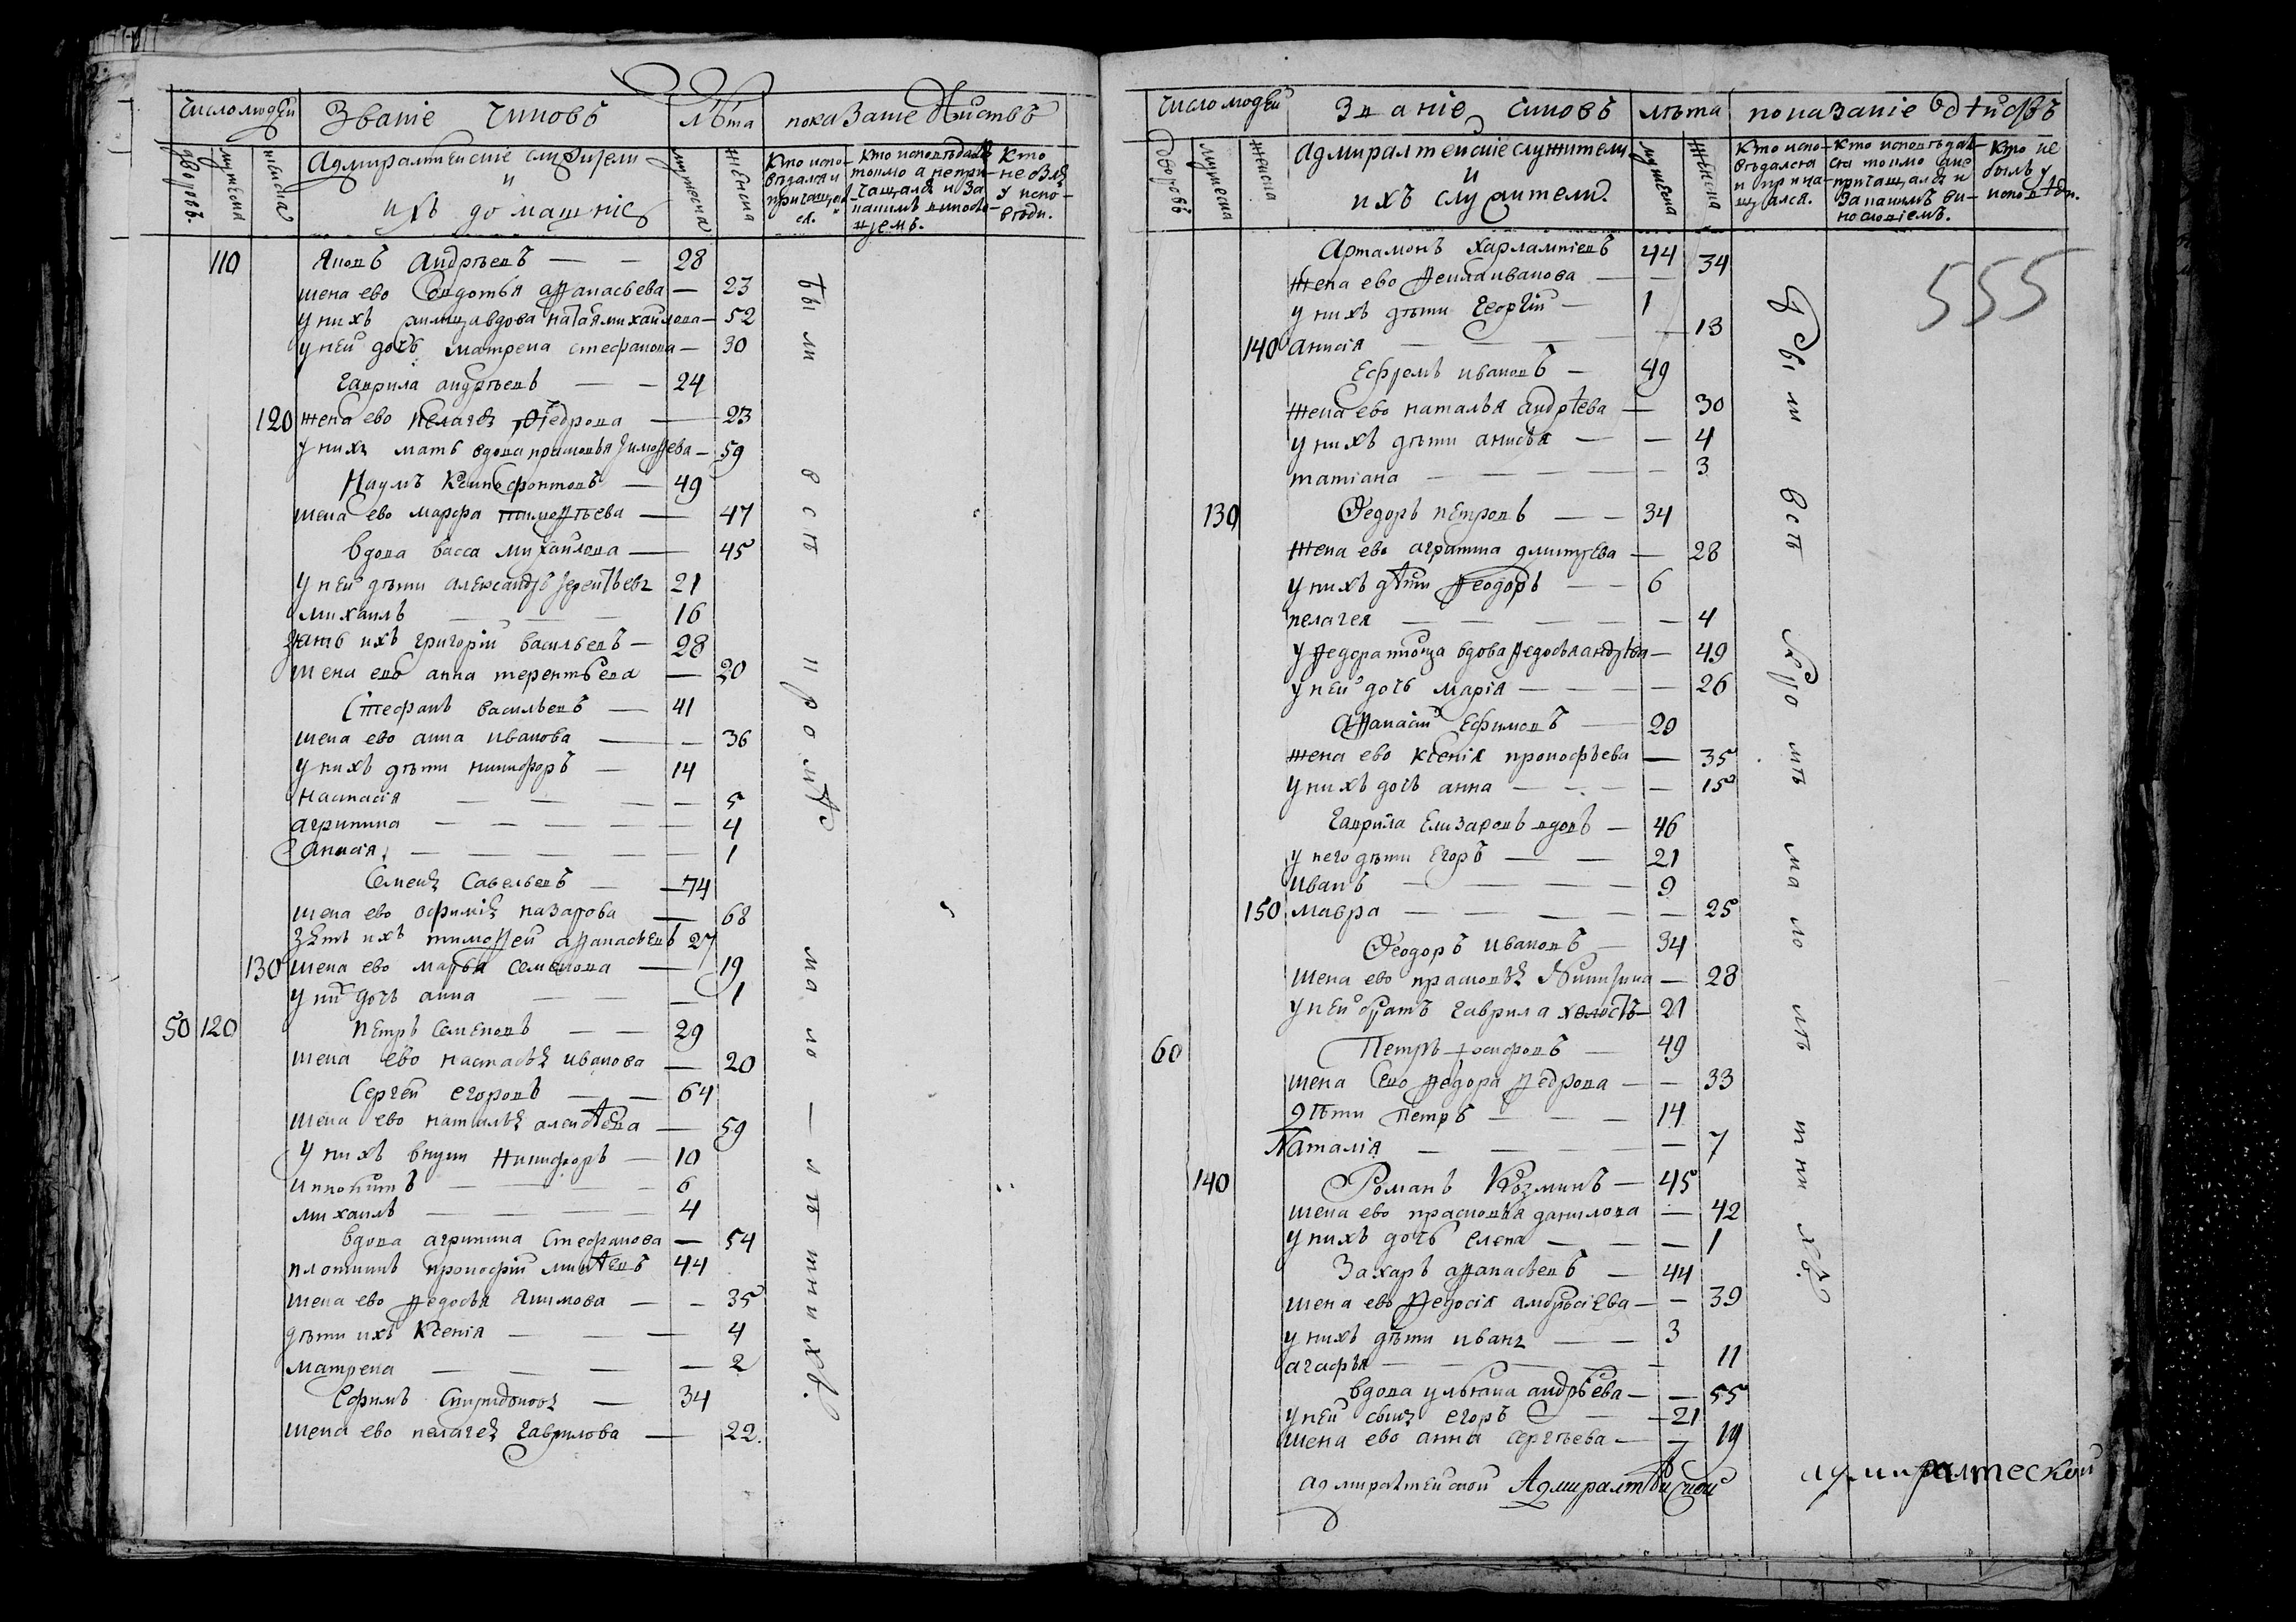 число людей Званіе чиновъ лѣта показаніе действъ
дворовъ. мужеска женска Адмиралтейскіе служители мужеска женска Кто испо- Кто исповѣдался Кто
и ведался и токмо а непри- не былъ
ихъ домашніе причащал чащался и за у испо-
ся. какимъ виносло- вѣди.
віемъ.
110 Яковъ Андрѣевъ — — 28
жена ево Евдотья аѳанасьева — 23
у нихъ вдова михайлова — 52
у ней дочь матрена стефанова — 30
гаврила андрѣевъ — — 24
120 жена ево Пелагея Ѳедрова — 23
у нихъ мать вдова прасковья тимоѳева — 59
Наумъ Ксинофонтовъ — 49
жена ево марфа тимоѳѣева — 47
Вдова васса михайлова — 45
у ней дѣти александръ терентьевъ 21
михаилъ — — 16
зять ихъ григорій васильевъ — 28
жена ево анна терентьева — 20
Стефанъ васильевъ — 41
жена ево анна иванова — — 36
у нихъ дѣти никифоръ — 14
настасія — — — — 5
агрипина — — — — — 4
анисія — — — — — 1
Семенъ Савельевъ — — 74
жена ево афимія назарова — 68
зять ихъ тимоѳей аѳанасьевъ 27
130 жена ево марья семенова — 19
у них дочь анна — — — 1
50 120 Петръ Семеновъ — — 29
жена ево настасья иванова — 20
Сергей егоровъ — — 64
жена ево наталья алексѣева — 59
у нихъ внуки никифоръ — 10
ипполитъ — — — — 6
михаилъ — — — — 4
Вдова агрипина Стефанова — 54
плотникъ прокофій микѣевъ 44
жена ево ѳедосья якимова — — 35
дѣти ихъ Ксенія — — — 4
матрена — — — — 2
Ефимъ Спиридоновъ — 34
жена ево пелагея гаврилова — 22.
были всѣ кромѣ малолѣтнихъ.
число людей Званіе чиновъ лѣта показаніе действъ
дворовъ мужеска женска адмиралтейскіе служители мужеска женска Кто испо- Кто исповѣдал- Кто не
и вѣдался ся токмо а не былъ у
ихъ служители. и прича- причащался и исповѣди.
щался. за какимъ ви-
нословіемъ.
555
Артамонъ харлампіевъ 44
жена ево ѳекла иванова — — 34
у нихъ дѣти георгій — 1
140 анисія — — — — 13
Ефремъ ивановъ — 49
жена ево наталья андрѣева — 30
у нихъ дѣти анисья — — 4
татіана — — — — 3
130 Ѳедоръ петровъ — — 34
жена ево агрипина дмитрева — 28
у нихъ дѣти ѳеодоръ — — 6
пелагея — — — — — 4
у ѳедора вдова ѳедосья андрѣева — 49
у ней дочь марія — — — — 26
аѳанасій Ефимовъ — 29
жена ево ксенія прокофьева — 35
у нихъ дочь анна — — — — 15
гаврила Елизаровъ вдовъ — 46
у него дѣти Егоръ — — 21
иванъ — — — — 9
150 мавра — — — — — 25
Ѳеодоръ ивановъ — 34
жена ево прасковья Никитина — 28
у ней братъ гаврила холостъ — 21
60 Петръ Іосифовъ — 49
жена ево ѳедора ѳедрова — — 33
дѣти Петръ — — — 14
Наталія — — — — — 7
140 Романъ Козминъ — 45
жена ево прасковья данилова — 42
у нихъ дочь елена — — — 1
Захаръ аѳанасьевъ — 44
жена ево ѳедосія амбросіева — — 39
у нихъ дѣти иванъ — — 3
агафья — — — — 11
Вдова ульяна андрѣева — — 55
у ней сынъ егоръ — — 21
жена ево анна сергѣева — — 19
были всѣ кромѣ малолѣтнихъ.
адмиралтейской Адмиралтейской адмиралтеской